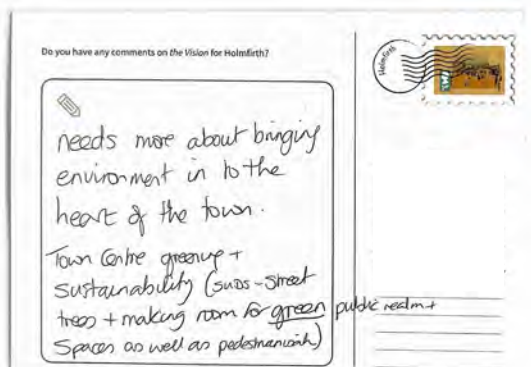 Do you have any comments on the Vision for Holmfirth?
Holmfirth
needs more about bringing
environment in to the
heart of the town.
Town Centre greenup +
sustainability (suds - street
trees + making room for green public realm +
spaces as well as pedestrianisatn)